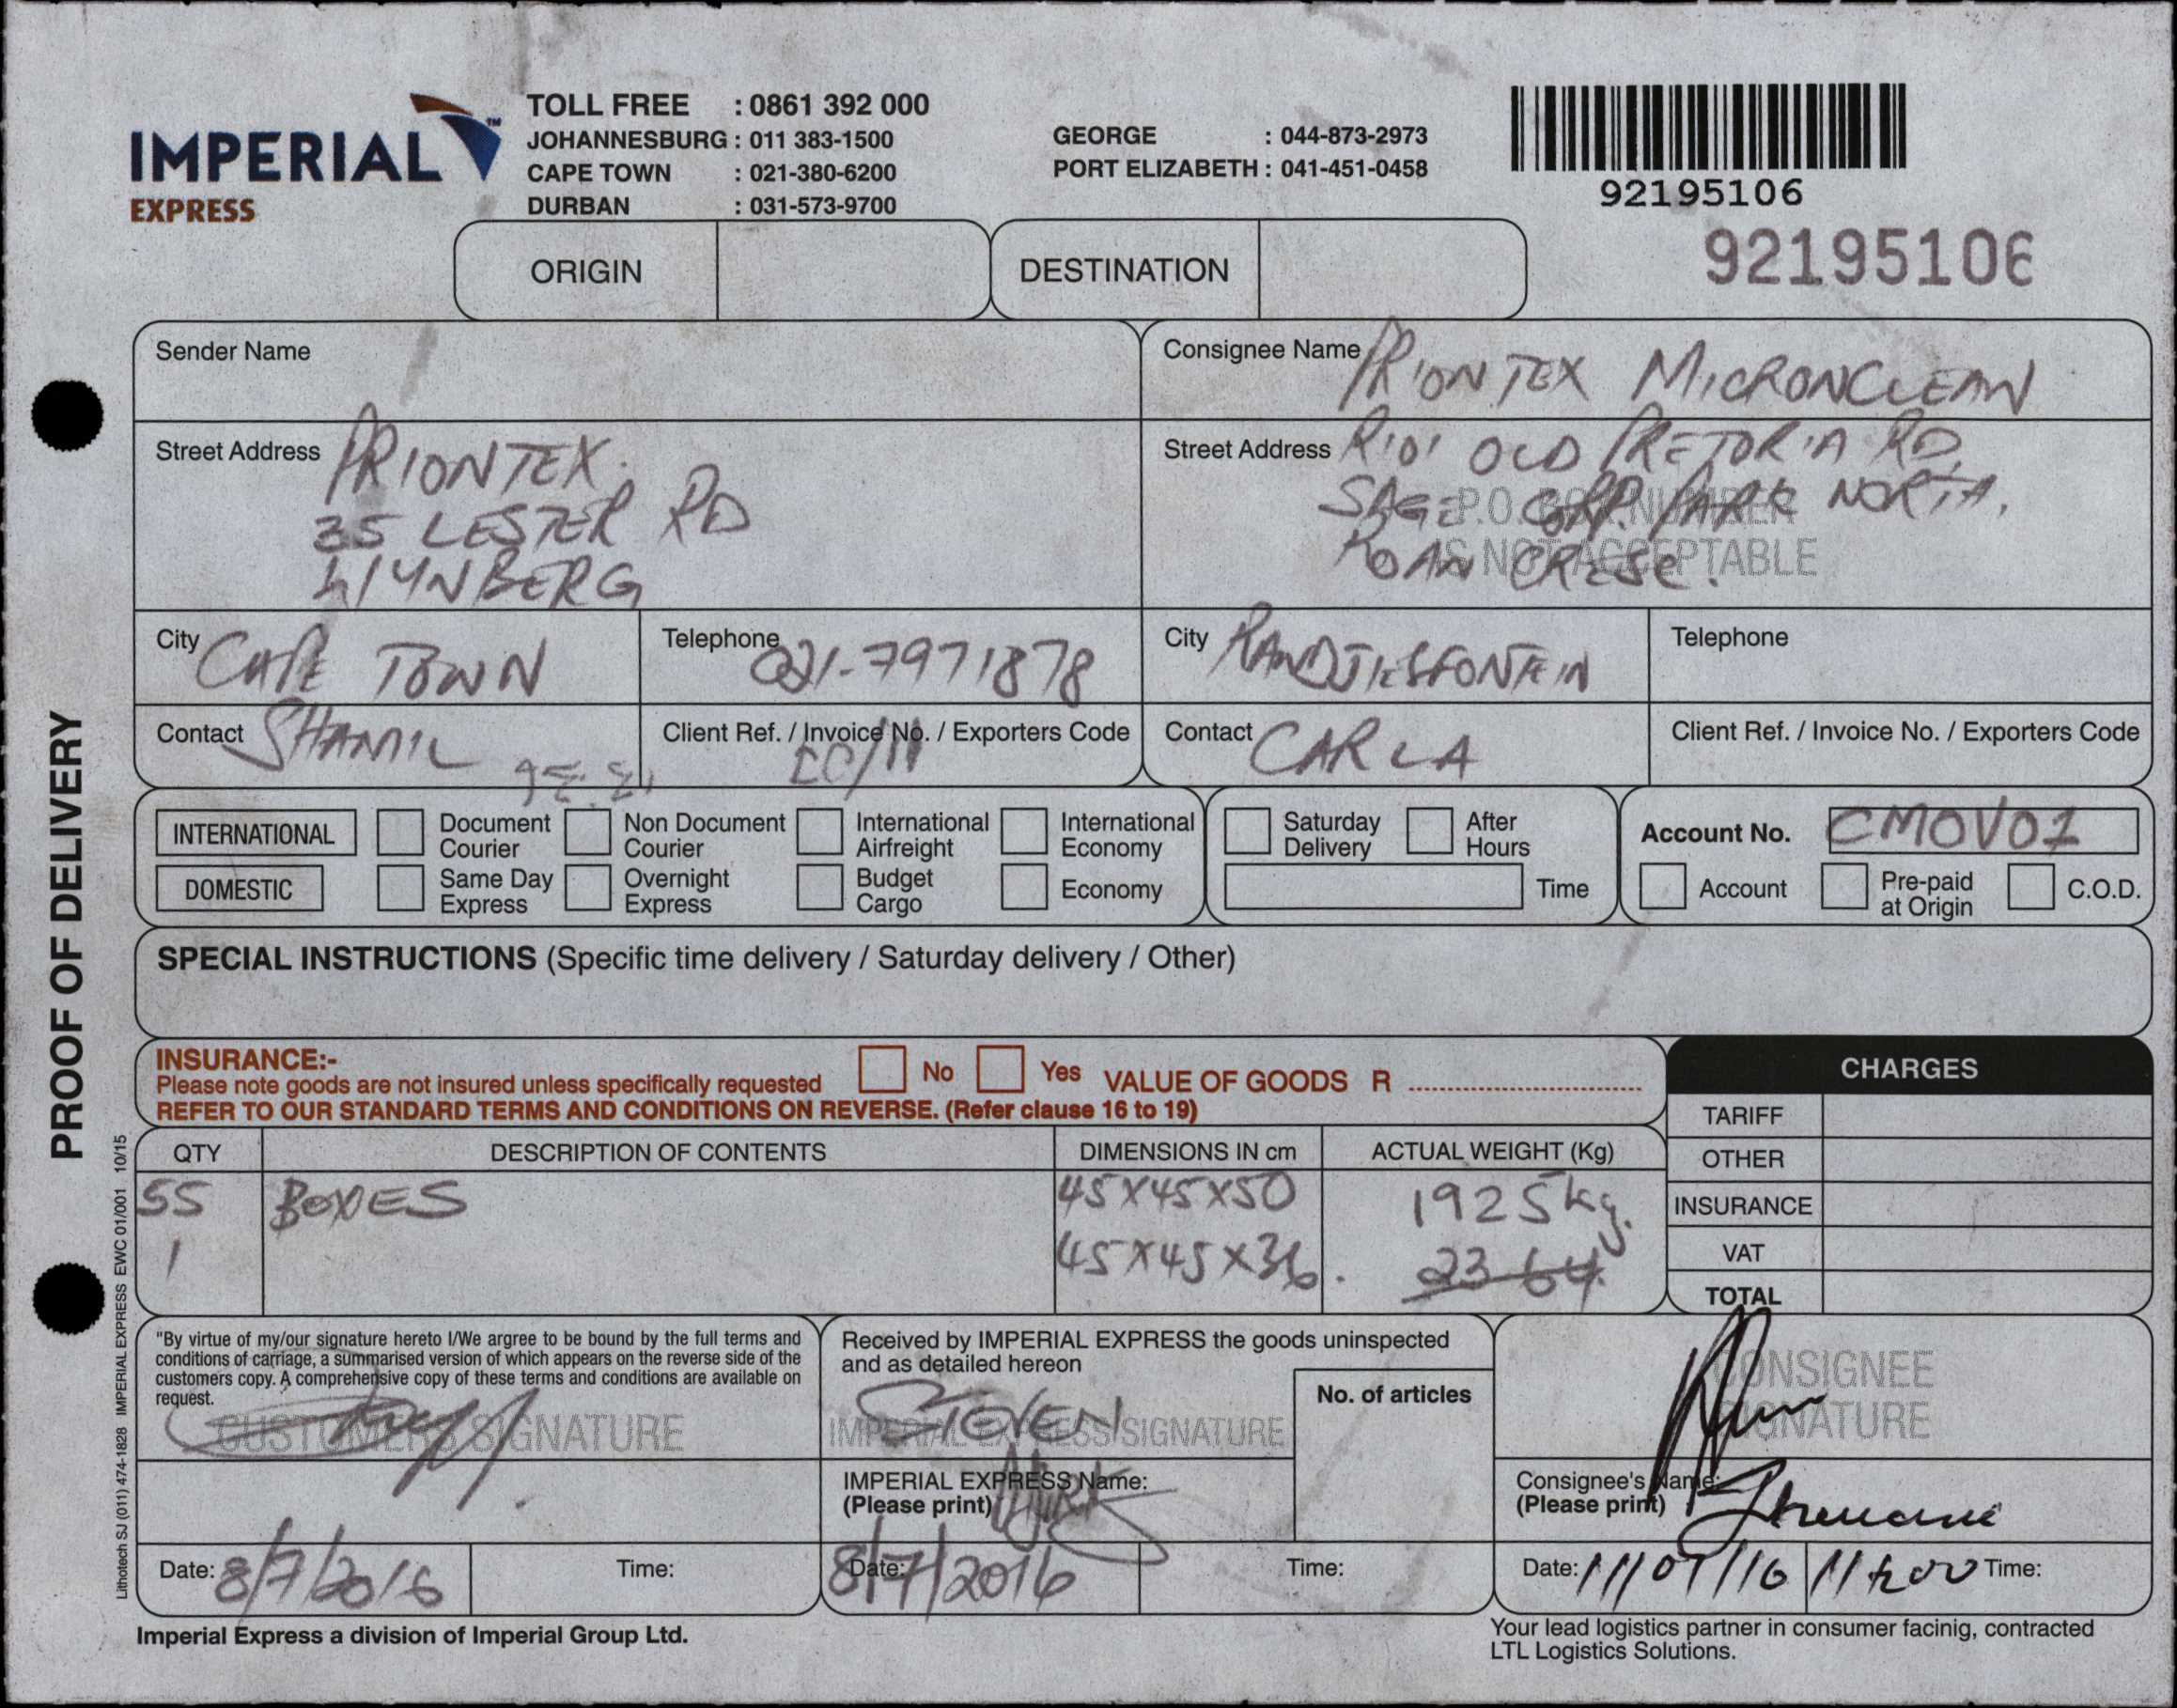 IMPERIAL
EXPRESS
TOLL FREE : 0861 392 000
JOHANNESBURG : 011 383-1500
CAPE TOWN : 021-380-6200
DURBAN : 031-573-9700
GEORGE : 044-873-2973
PORT ELIZABETH : 041-451-0458
92195106
92195106
ORIGIN
DESTINATION
PROOF OF DELIVERY
Lithotech SJ (011) 474-1828 IMPERIAL EXPRESS EWC 01/001 10/15
Sender Name
Consignee Name PRIONTEX MICRONCLEAN
Street Address PRIONTEX.
35 LESTER RD
WYNBERG
Street Address R101 OLD PRETORIA RD
SAGE CORP. PARK NORTH,
ROAN CRESC.
P.O. BOX NUMBER
IS NOT ACCEPTABLE
City CAPE TOWN
Telephone 021-7971878
City RANDJIESFONTEIN
Telephone
Contact SHAMIL
Client Ref. / Invoice No. / Exporters Code
Contact CARLA
Client Ref. / Invoice No. / Exporters Code
INTERNATIONAL
Document Courier
Non Document Courier
International Airfreight
International Economy
DOMESTIC
Same Day Express
Overnight Express
Budget Cargo
Economy
Saturday Delivery
After Hours
Time
Account No. CMOV01
Account
Pre-paid at Origin
C.O.D.
SPECIAL INSTRUCTIONS (Specific time delivery / Saturday delivery / Other)
INSURANCE:-
Please note goods are not insured unless specifically requested
No
Yes
VALUE OF GOODS R
REFER TO OUR STANDARD TERMS AND CONDITIONS ON REVERSE. (Refer clause 16 to 19)
CHARGES
TARIFF
OTHER
INSURANCE
VAT
TOTAL
QTY DESCRIPTION OF CONTENTS DIMENSIONS IN cm ACTUAL WEIGHT (Kg)
55 BOXES 45X45X50 1925kg.
1 45X45X36. 2364
"By virtue of my/our signature hereto I/We argree to be bound by the full terms and
conditions of carriage, a summarised version of which appears on the reverse side of the
customers copy. A comprehensive copy of these terms and conditions are available on
request.
CUSTOMERS SIGNATURE
Date: 8/7/2016
Time:
Received by IMPERIAL EXPRESS the goods uninspected
and as detailed hereon
No. of articles
STEVEN
IMPERIAL EXPRESS SIGNATURE
IMPERIAL EXPRESS Name:
(Please print)
Date: 8/7/2016
Time:
CONSIGNEE
SIGNATURE
Consignee's Name:
(Please print)
Date: 11/07/16
11h00 Time:
Imperial Express a division of Imperial Group Ltd.
Your lead logistics partner in consumer facinig, contracted
LTL Logistics Solutions.